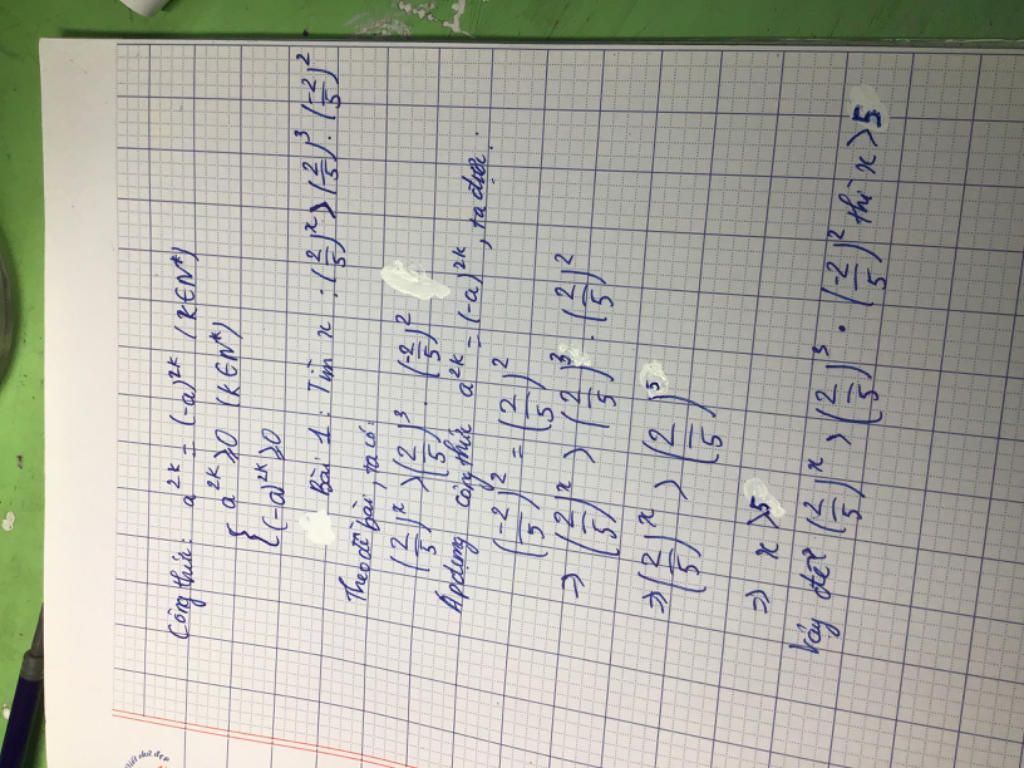 Công thức: a^2k = (-a)^2k (K∈N*)
{ a^2k ⩾ 0 (K∈N*)
(-a)^2k ⩾ 0
Bài 1: Tìm x : (2/5)^x > (2/5)^3 . (-2/5)^2
Theo đề bài, ta có:
(2/5)^x > (2/5)^3 . (-2/5)^2
Áp dụng công thức a^2k = (-a)^2k, ta được.
(-2/5)^2 = (2/5)^2
⇒ (2/5)^x > (2/5)^3 . (2/5)^2
⇒ (2/5)^x > (2/5)^5
⇒ x > 5
Vậy để (2/5)^x > (2/5)^3 . (-2/5)^2 thì x > 5
viết chữ đẹp